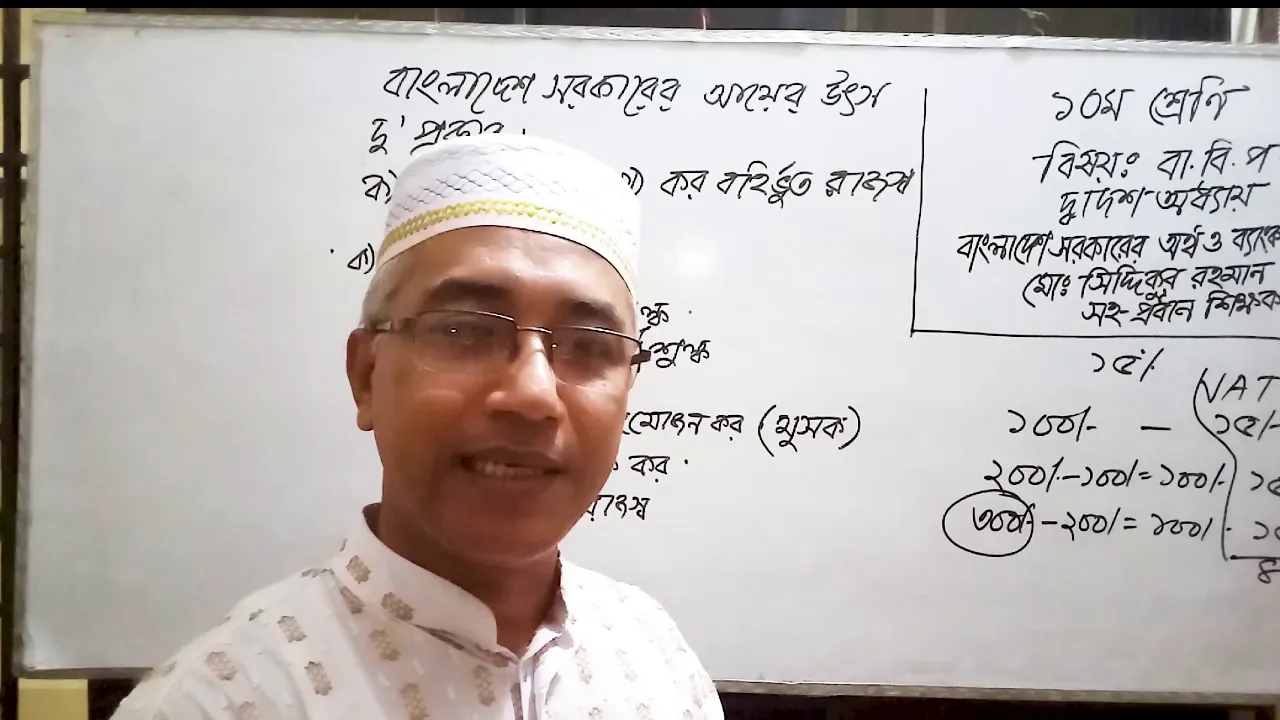 বাংলাদেশ সরকারের আয়ের উৎস
দু' প্রকার
ক) কর বহির্ভূত রাজস্ব
ক)
শুল্ক
কর (মুসক)
কর
রাজস্ব
১০ম শ্রেণি
বিষয়ঃ বা. বি. প
দ্বাদশ অধ্যায়
বাংলাদেশ সরকারের অর্থ ও ব্যাংক
মোঃ সিদ্দিকুর রহমান
সহ-প্রধান শিক্ষক
১৫%
VAT
১০০/- — ১৫/-
২০০/-১০০/=১০০/-
৩০০/-২০০/=১০০/-